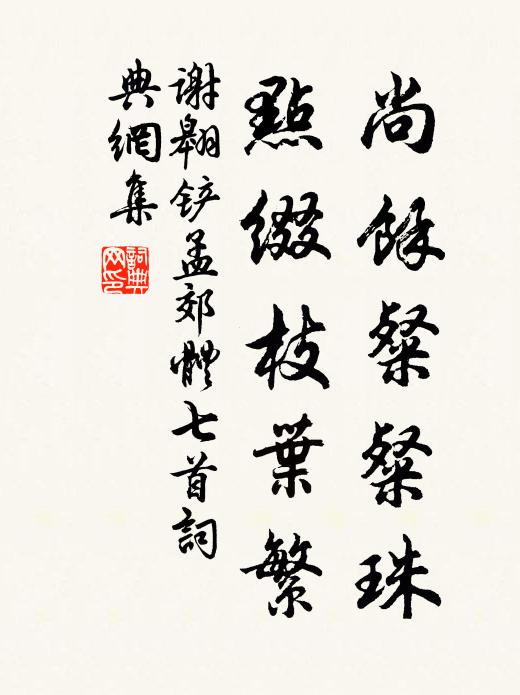 尚餘粲粲珠
點綴枝葉繁
謝翱铲孟郊體七首詞
典網集
詞典
网印